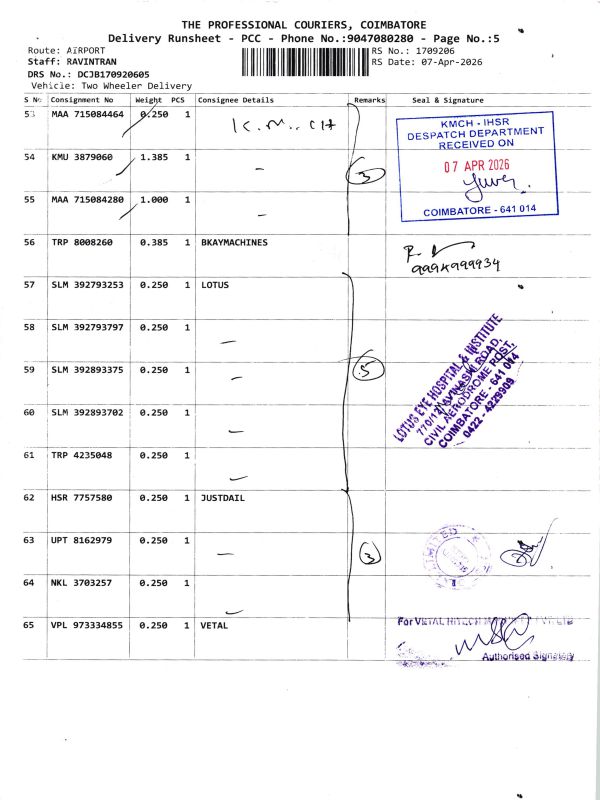 THE PROFESSIONAL COURIERS, COIMBATORE
Delivery Runsheet - PCC - Phone No.:9047080280 - Page No.:5
Route: AIRPORT
RS No.: 1709206
Staff: RAVINTRAN
RS Date: 07-Apr-2026
DRS No.: DCJB170920605
Vehicle: Two Wheeler Delivery
S No Consignment No Weight PCS Consignee Details Remarks Seal & Signature
53 MAA 715084464 0.250 1 K.M.CH
KMCH - IHSR
DESPATCH DEPARTMENT
RECEIVED ON
07 APR 2026
COIMBATORE - 641 014
54 KMU 3879060 1.385 1 — 3
55 MAA 715084280 1.000 1 —
56 TRP 8008260 0.385 1 BKAYMACHINES
57 SLM 392793253 0.250 1 LOTUS
58 SLM 392793797 0.250 1 —
59 SLM 392893375 0.250 1 — 5
LOTUS EYE HOSPITAL & INSTITUTE
770/12, AVINASHI ROAD,
CIVIL AERODROME POST,
COIMBATORE - 641 014
0422 - 4229909
60 SLM 392893702 0.250 1 —
61 TRP 4235048 0.250 1 —
62 HSR 7757580 0.250 1 JUSTDAIL
63 UPT 8162979 0.250 1 — 3
64 NKL 3703257 0.250 1 —
65 VPL 973334855 0.250 1 VETAL
For VETAL HITECH
Authorised Signatory